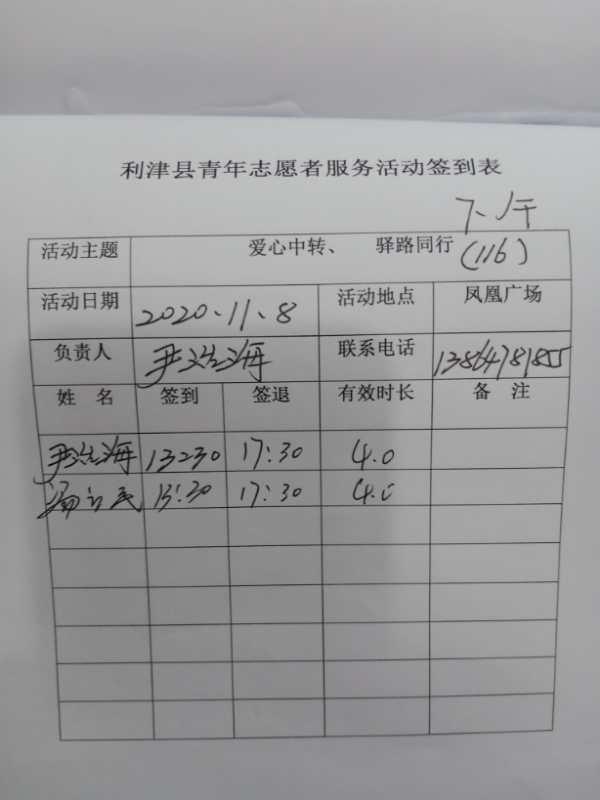 利津县青年志愿者服务活动签到表
下午
活动主题 爱心中转、 驿路同行 (116)
活动日期 2020.11.8 活动地点 凤凰广场
负责人 尹 海 联系电话 13864781855
姓 名 签到 签退 有效时长 备 注
尹 海 13:30 17:30 4.0
13:30 17:30 4.0